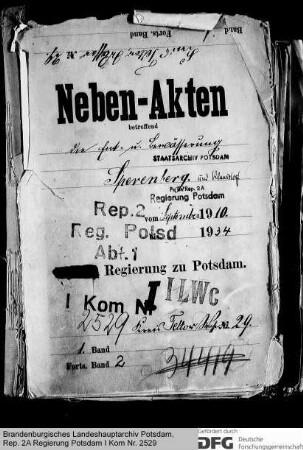 Band
Forts. Band
Neben-Akten
betreffend
die Ent- u. Bewässerung
STAATSARCHIV POTSDAM
Sperenberg und
Pr.Br.Rep. 2A
Regierung Potsdam
Rep. 2 vom September 1910.
Reg. Potsd 1934
Abt. 1
Regierung zu Potsdam.
I Kom Nr I ILWc
2529 Kreis Teltow 29.
1. Band
Forts. Band 2
Brandenburgisches Landeshauptarchiv Potsdam,
Rep. 2A Regierung Potsdam I Kom Nr. 2529
Gefördert durch
DFG Deutsche
Forschungsgemeinschaft